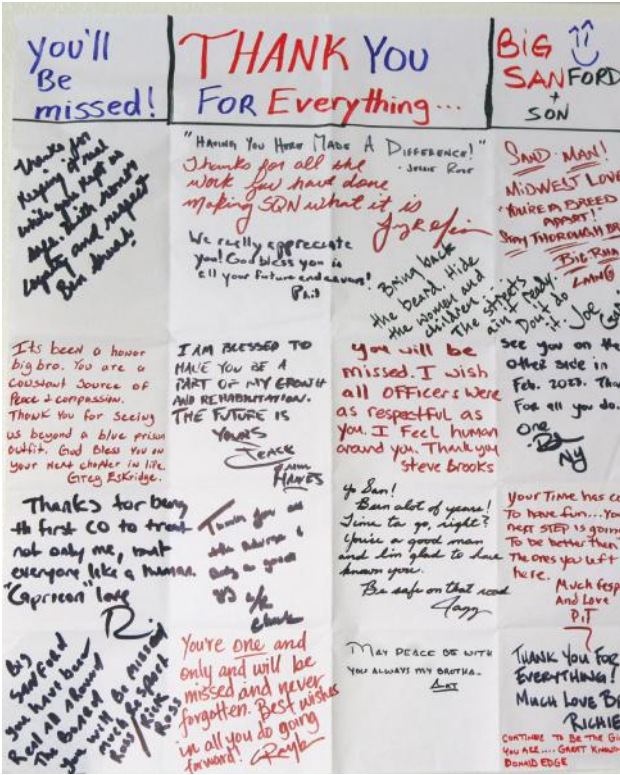 you'll
Be
missed!
THANK YOU
FOR Everything...
BiG
SANFORD
+
SON
Thanks for
Keeping it real
while you kept us
safe. With honor
Loyalty and respect
"HAVING YOU HERE MADE A DIFFERENCE!"
Thanks for all the
work you have done
making SQN what it is
We really appreciate
you! God bless you in
all your future endeavors!
Phil
Bring back
the beard. Hide
the women and
children.
The streets
ain't ready.
Don't do
it. Joe
SAND-MAN!
MIDWEST LOVE
"YOU'RE A BREED
APART!"
STAY THOROUGH
BIG
Its been a honor
big bro. You are a
constant source of
Peace & compassion.
Thank you for seeing
us beyond a blue prison
outfit. God Bless you on
your next chapter in life.
Greg Eskridge.
I AM BLESSED TO
HAVE YOU BE A
PART OF MY GROWTH
AND REHABILITATION.
THE FUTURE IS
YOURS
PEACE
HAWES
You will be
missed. I wish
all OFFicers were
as respectful as
you. I Feel human
around you. Thank you
Steve Brooks
see you on the
other side in
Feb.
For all you do.
one
NY
Thanks for being
th first CO to treat
not only me, but
everyone like a human.
"Capricon" love
Thank you
yo San!
Been alot of years!
Time to go, right?
You're a good man
and Iin glad to have
known you.
Be safe on that road
Jazz
your Time has
To have fun...
next STEP is going
To be better then
The ones you left
here.
Much
And Love
P.T
Big
SanFord
you have been
Real all around
The board
you will be missed
much Respect
Rick
Ross
You're one and
only and will be
missed and never
forgotten. Best wishes
in all you do going
forward!
MAY PEACE BE WITH
YOU ALWAYS MY BROTHA.
THANK YOU FOR
EVERYTHING!
MUCH LOVE
RICHIE
CONTINUE TO BE THE
YOU ARE.... GREAT
DONALD EDGE